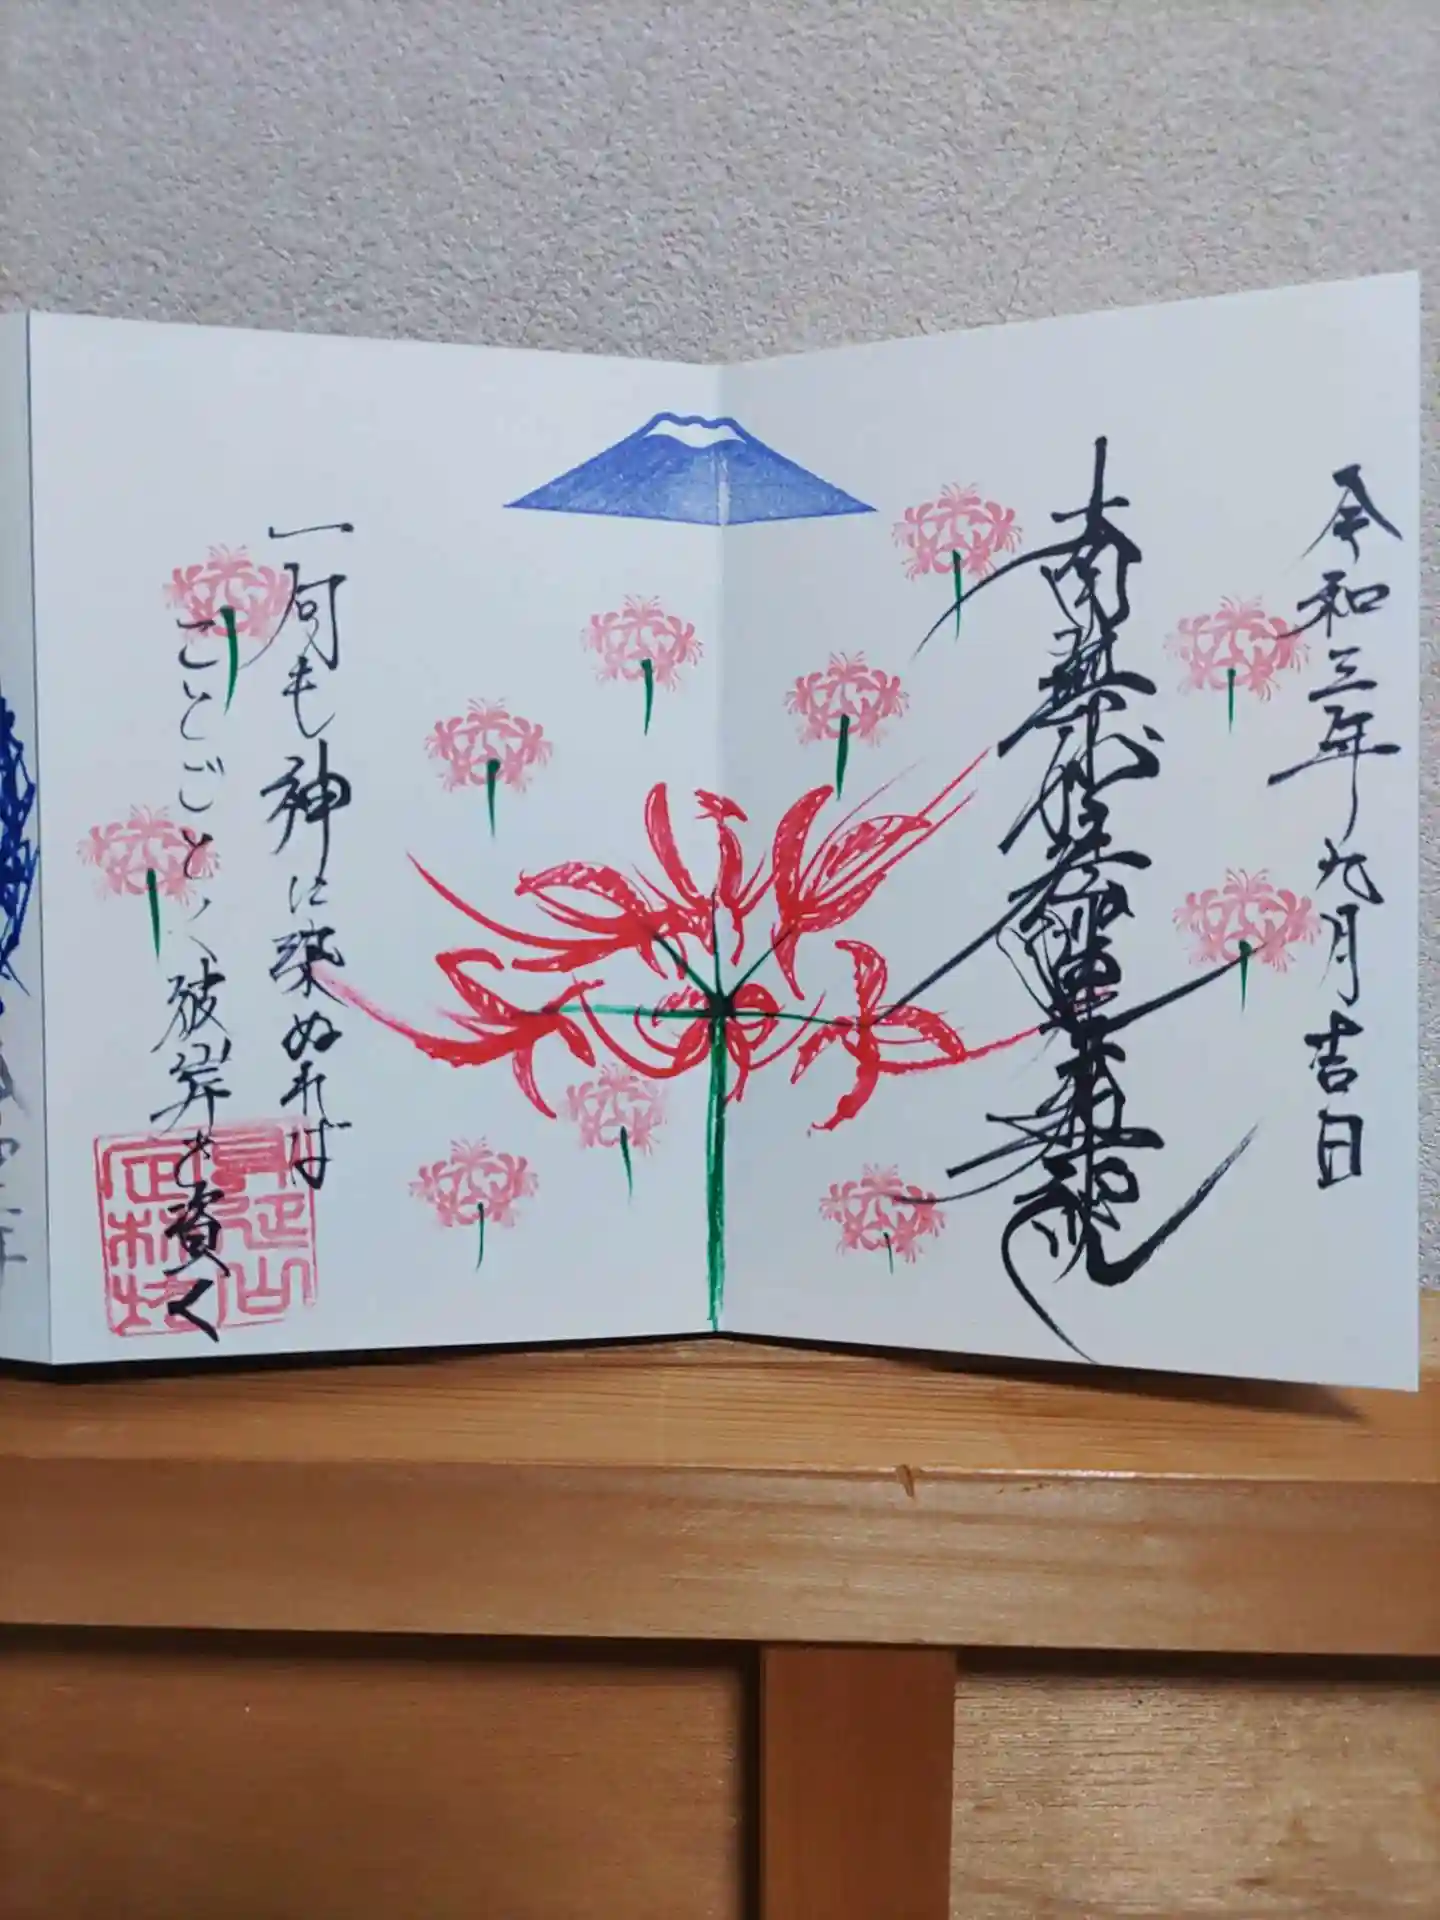 令和三年九月吉日
南無妙法蓮華経
一句も神に染ぬれば
ことごとく彼岸を資く
身延山
定林坊